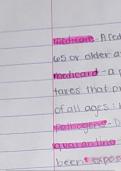 Medicare - A fed
65 or older a
Medicaid - a p
taxes that pr
of all ages :
Pathogens - D
quarantine
been expos